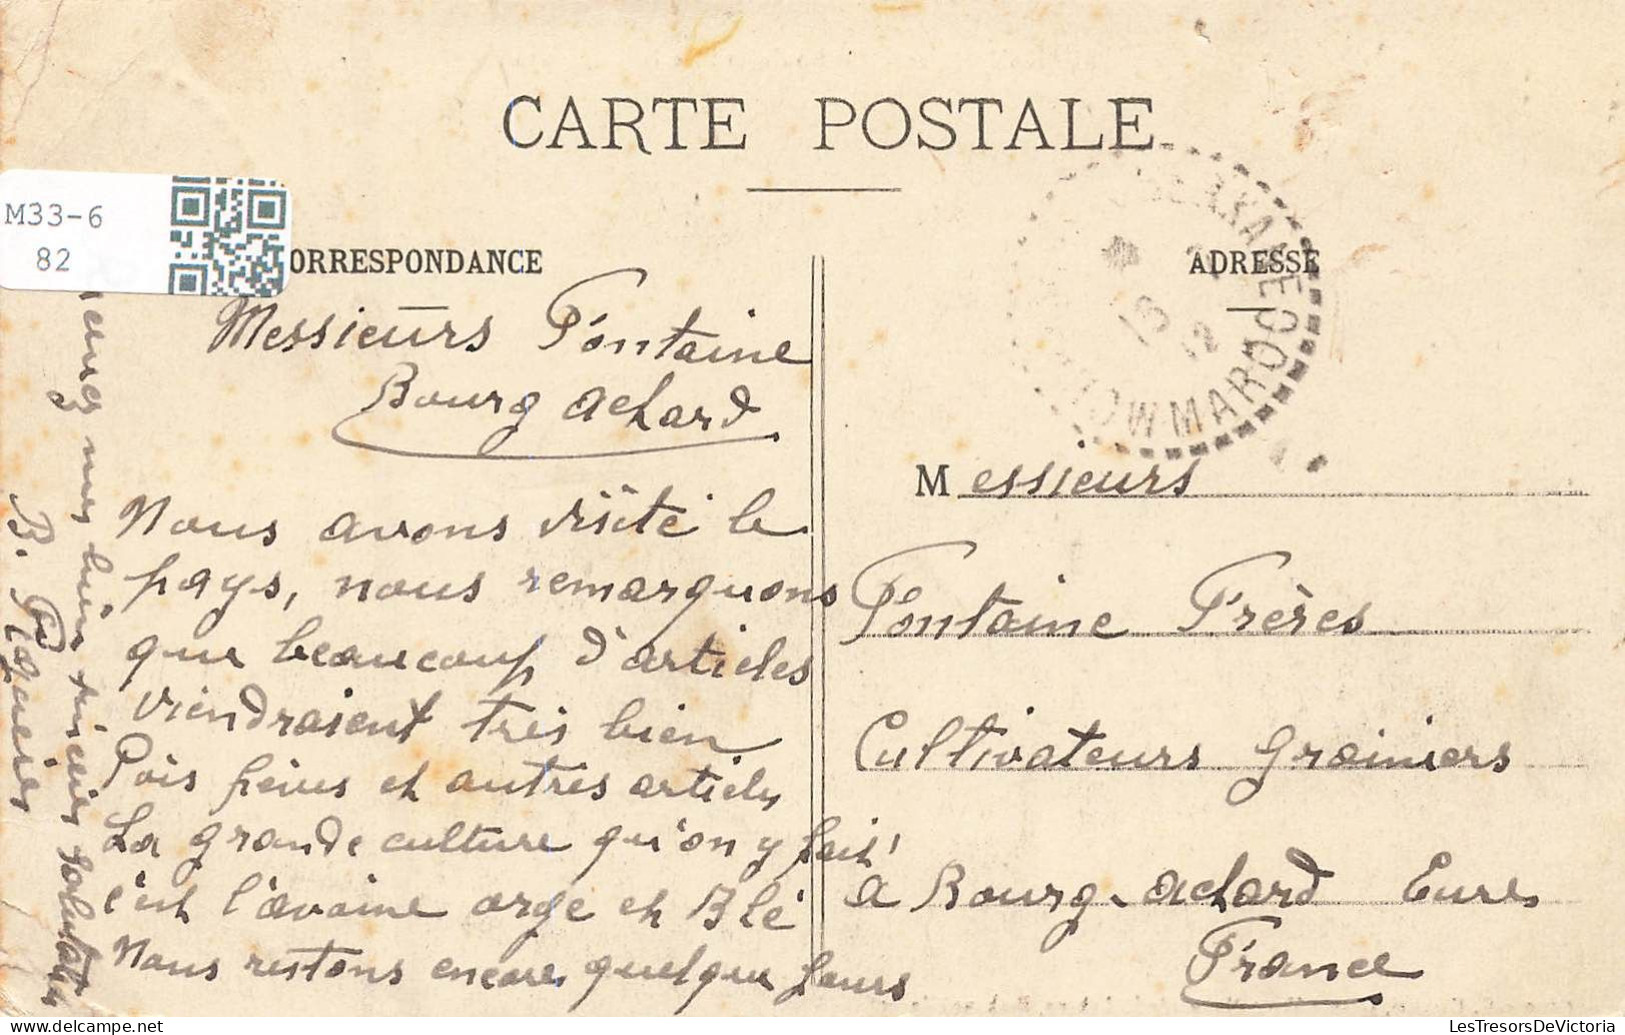 CARTE POSTALE
M33-6
82
ORRESPONDANCE
ADRESSE
MAROC
Messieurs Fontaine
Bourg achard
Nous avons visité le
pays, nous remarquons
que beaucoup d'articles
viendraient très bien
Pois fèves et autres articles
La grande culture qu'on y fait
c'est l'avoine orge et Blé
Nous restons encore quelque jours
mes bien sincères salutations
B.
Messieurs
Fontaine Frères
Cultivateurs grainiers
a Bourg-achard Eure
France
LesTresorsDeVictoria